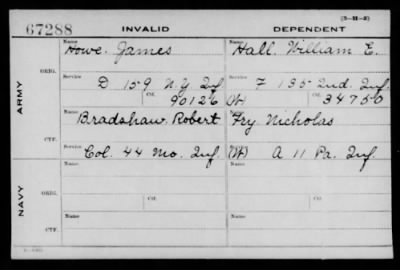 (3-11-3)
67288 INVALID DEPENDENT
Name Name
Howe. James Hall. William E.
ARMY
ORIG.
Service Service
D 159 N.Y. Inf F 135 Ind. Inf.
Ctf. Ctf.
90126 34750
Name Name
Bradshaw. Robert Fry Nicholas
CTF.
Service Service
Col. 44 Mo. Inf. A 11 Pa. Inf.
NAVY
ORIG.
Name Name
Ctf. Ctf.
Service Service
CTF.
Name Name
Service Service